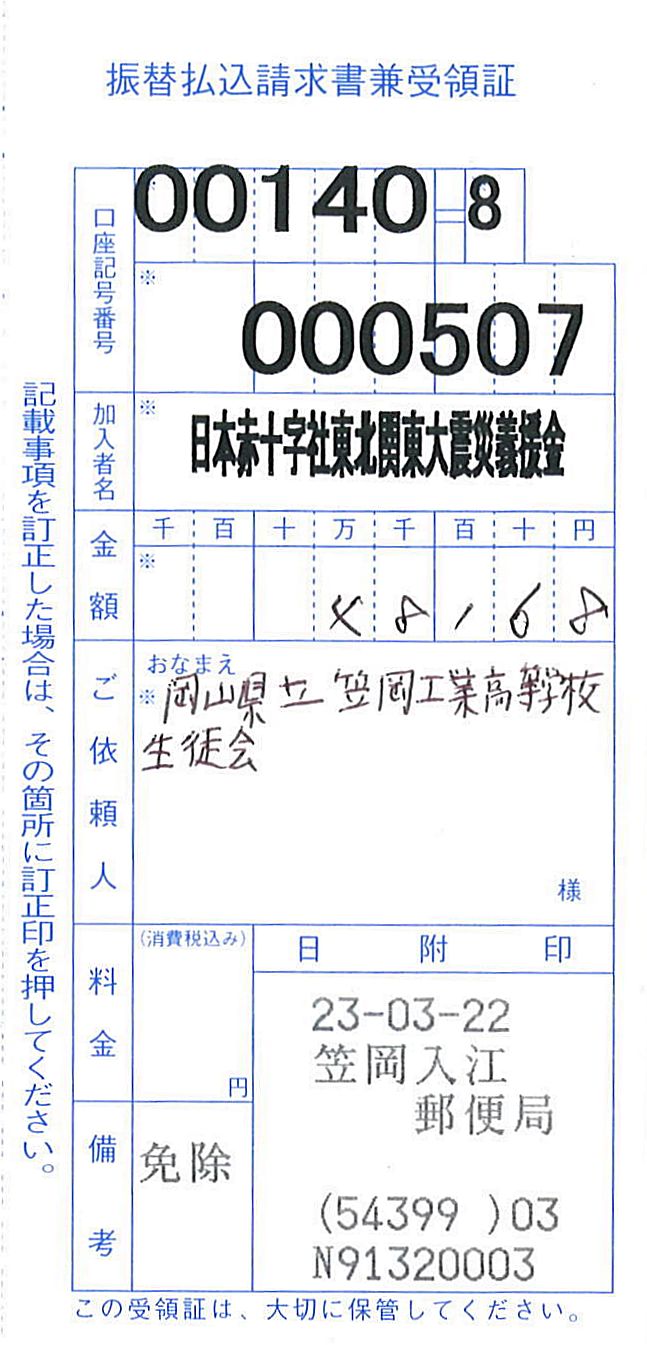 振替払込請求書兼受領証
口座記号番号
00140-8
※
000507
加入者名
※
日本赤十字社東北関東大震災義援金
金額
千 百 十 万 千 百 十 円
※
48168
ご依頼人
おなまえ
※
岡山県立笠岡工業高等学校
生徒会
様
料金
(消費税込み)
円
日附印
23-03-22
笠岡入江
郵便局
(54399 )03
N91320003
備考
免除
記載事項を訂正した場合は、その箇所に訂正印を押してください。
この受領証は、大切に保管してください。